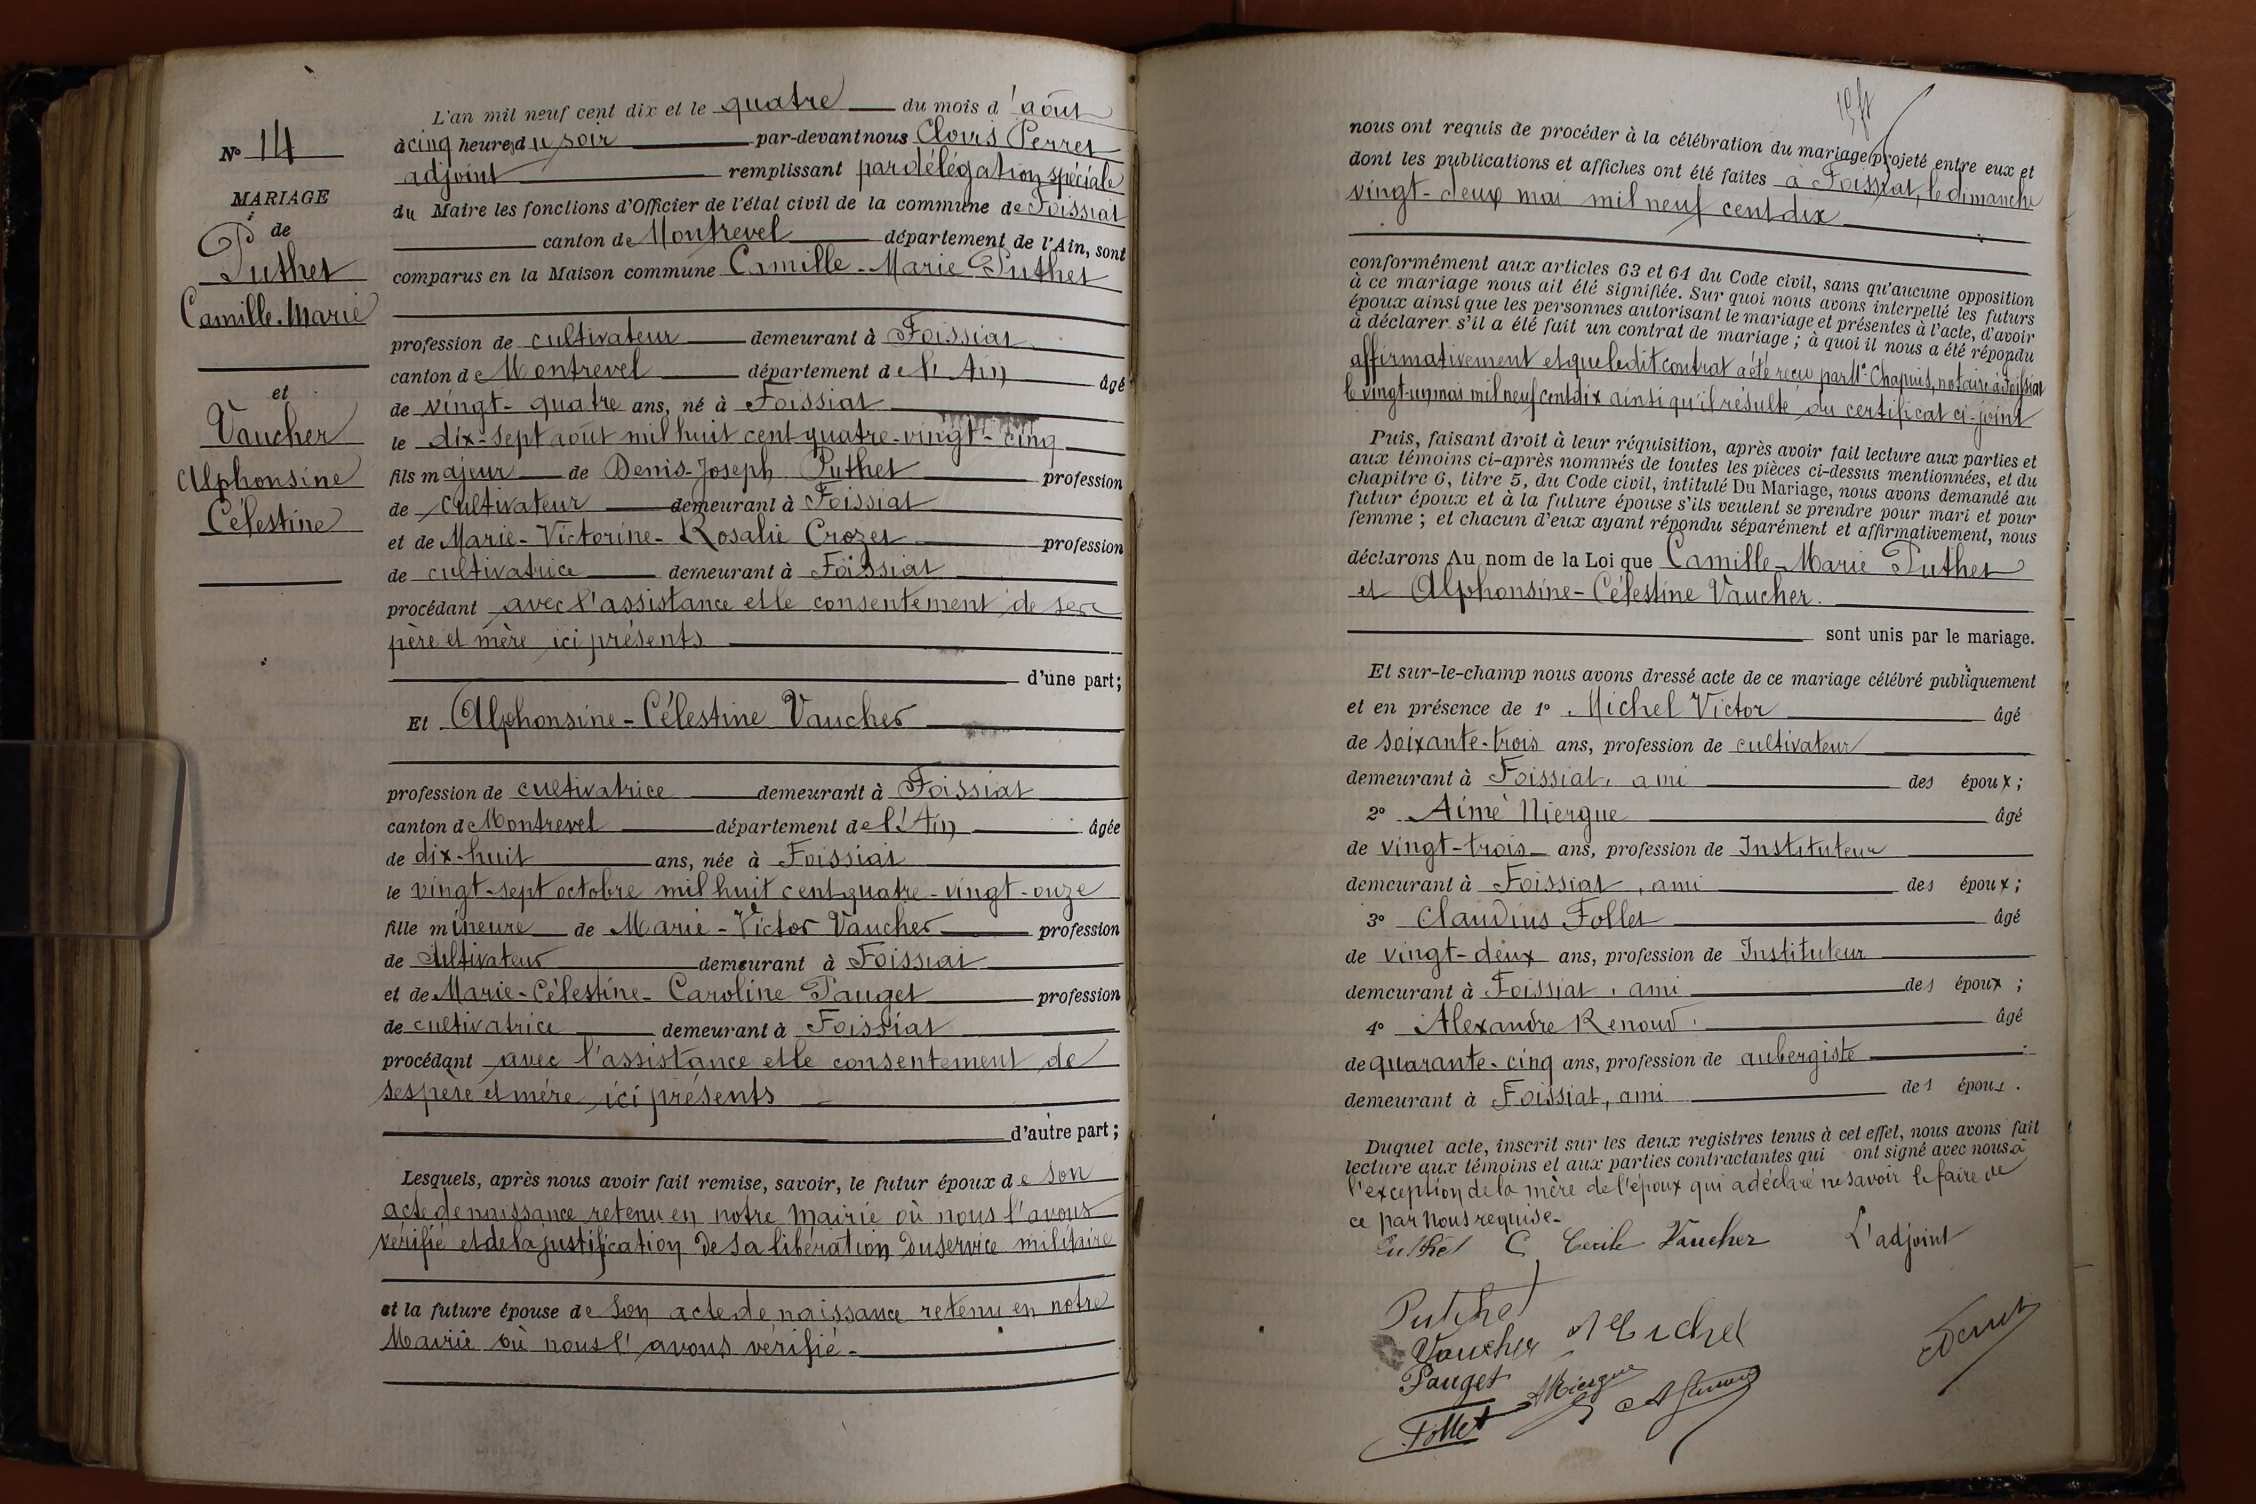 N° 14
MARIAGE
de
Puthet
Camille-Marie
et
Vaucher
Alphonsine
Célestine
L'an mil neuf cent dix et le quatre du mois d'août
à cinq heures du soir par-devant nous Clovis Perret
adjoint remplissant par délégation spéciale
du Maire les fonctions d'Officier de l'état civil de la commune de Foissiat
canton de Montrevel département de l'Ain, sont
comparus en la Maison commune Camille-Marie Puthet
profession de cultivateur demeurant à Foissiat
canton de Montrevel département de l'Ain âgé
de vingt-quatre ans, né à Foissiat
le dix-sept août mil huit cent quatre-vingt-cinq
fils majeur de Denis-Joseph Puthet profession
de cultivateur demeurant à Foissiat
et de Marie-Victorine-Rosalie Crozet profession
de cultivatrice demeurant à Foissiat
procédant avec l'assistance et le consentement de ses
père et mère ici présents
d'une part;
Et Alphonsine-Célestine Vaucher
profession de cultivatrice demeurant à Foissiat
canton de Montrevel département de l'Ain âgée
de dix-huit ans, née à Foissiat
le vingt-sept octobre mil huit cent quatre-vingt-onze
fille mineure de Marie-Victor Vaucher profession
de cultivateur demeurant à Foissiat
et de Marie-Célestine-Caroline Pauget profession
de cultivatrice demeurant à Foissiat
procédant avec l'assistance et le consentement de
ses père et mère ici présents
d'autre part;
Lesquels, après nous avoir fait remise, savoir, le futur époux de son
acte de naissance retenu en notre Mairie où nous l'avons
vérifié et de la justification de sa libération du service militaire
et la future épouse de son acte de naissance retenu en notre
Mairie où nous l'avons vérifié.
nous ont requis de procéder à la célébration du mariage projeté entre eux et
dont les publications et affiches ont été faites à Foissiat, le dimanche
vingt-deux mai mil neuf cent dix
conformément aux articles 63 et 64 du Code civil, sans qu'aucune opposition
à ce mariage nous ait été signifiée. Sur quoi nous avons interpellé les futurs
époux ainsi que les personnes autorisant le mariage et présentes à l'acte, d'avoir
à déclarer s'il a été fait un contrat de mariage; à quoi il nous a été répondu
affirmativement et que ledit contrat a été reçu par Me Chapuis, notaire à Foissiat
le vingt-un mai mil neuf cent dix ainsi qu'il résulte du certificat ci-joint
Puis, faisant droit à leur réquisition, après avoir fait lecture aux parties et
aux témoins ci-après nommés de toutes les pièces ci-dessus mentionnées, et du
chapitre 6, titre 5, du Code civil, intitulé Du Mariage, nous avons demandé au
futur époux et à la future épouse s'ils veulent se prendre pour mari et pour
femme; et chacun d'eux ayant répondu séparément et affirmativement, nous
déclarons Au nom de la Loi que Camille-Marie Puthet
et Alphonsine-Célestine Vaucher.
sont unis par le mariage.
Et sur-le-champ nous avons dressé acte de ce mariage célébré publiquement
et en présence de 1° Michel Victor âgé
de soixante-trois ans, profession de cultivateur
demeurant à Foissiat, ami des époux;
2° Aimé Niergue âgé
de vingt-trois ans, profession de Instituteur
demeurant à Foissiat, ami des époux;
3° Claudius Follet âgé
de vingt-deux ans, profession de Instituteur
demeurant à Foissiat, ami des époux;
4° Alexandre Renoud âgé
de quarante-cinq ans, profession de aubergiste
demeurant à Foissiat, ami des époux.
Duquel acte, inscrit sur les deux registres tenus à cet effet, nous avons fait
lecture aux témoins et aux parties contractantes qui ont signé avec nous à
l'exception de la mère de l'époux qui a déclaré ne savoir le faire de
ce par nous requise.
Puthet C Cecile Vaucher L'adjoint
Puthet
Vaucher Michel
Perret
Pauget
Follet